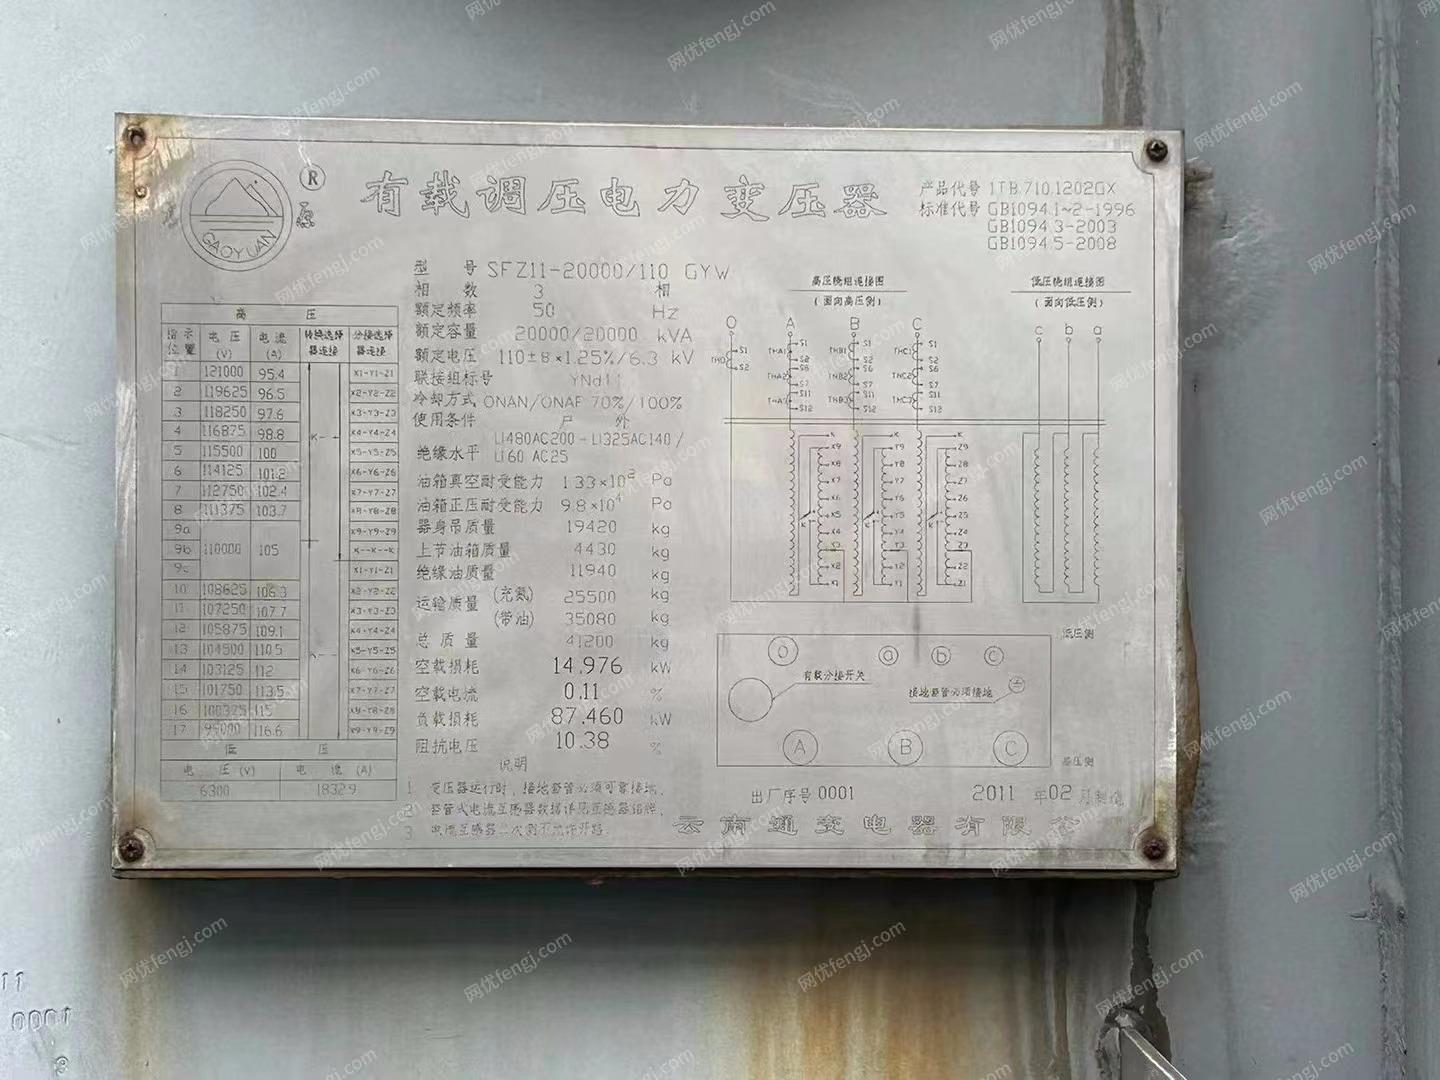 GAOYUAN
®
有载调压电力变压器
产品代号 1TB.710.1202GX
标准代号 GB1094.1~2-1996
GB1094.3-2003
GB1094.5-2008
型 号 SFZ11-20000/110 GYW
相 数 3 相
额定频率 50 Hz
额定容量 20000/20000 kVA
额定电压 110±8×1.25%/6.3 kV
联接组标号 YNd11
冷却方式 ONAN/ONAF 70%/100%
使用条件 户 外
绝缘水平 LI480AC200-LI325AC140/
LI60 AC25
油箱真空耐受能力 Pa
油箱正压耐受能力 9.8×10⁴ Pa
器身吊质量 19420 kg
上节油箱质量 4430 kg
绝缘油质量 11940 kg
运输质量 (充氮) 25500 kg
(带油) 35080 kg
总 质 量 41200 kg
空载损耗 14.976 kW
空载电流 0.11 %
负载损耗 87.460 kW
阻抗电压 10.38 %
说明
1 变压器运行时，接地套管必须可靠接地。
2 套管式电流互感器数据详见互感器铭牌。
3 电流互感器二次侧不允许开路。
高 压
指示位置 电 压 (V) 电 流 (A) 转换选择器连接 分接选择器连接
1 121000 95.4 X1-Y1-Z1
2 119625 96.5 X2-Y2-Z2
3 118250 97.6 X3-Y3-Z3
4 116875 98.8 K- X4-Y4-Z4
5 115500 100 X5-Y5-Z5
6 114125 101.2 X6-Y6-Z6
7 112750 102.4 X7-Y7-Z7
8 111375 103.7 X8-Y8-Z8
9a X9-Y9-Z9
9b 110000 105 K--K--K
9c X1-Y1-Z1
10 108625 106.3 X2-Y2-Z2
11 107250 107.7 X3-Y3-Z3
12 105875 109.1 X4-Y4-Z4
13 104500 110.5 K- X5-Y5-Z5
14 103125 112 X6-Y6-Z6
15 101750 113.5 X7-Y7-Z7
16 100375 115 X8-Y8-Z8
17 99000 116.6 X9-Y9-Z9
低 压
电 压 (V) 电 流 (A)
6300 1832.9
高压绕组连接图
(面向高压侧)
O A B C
低压绕组连接图
(面向低压侧)
c b a
低压侧
O a b c
有载分接开关
接地套管必须接地
A B C
高压侧
出厂序号 0001 2011 年 02 月制造
云南通变电器有限公
0001
网优fengj.com